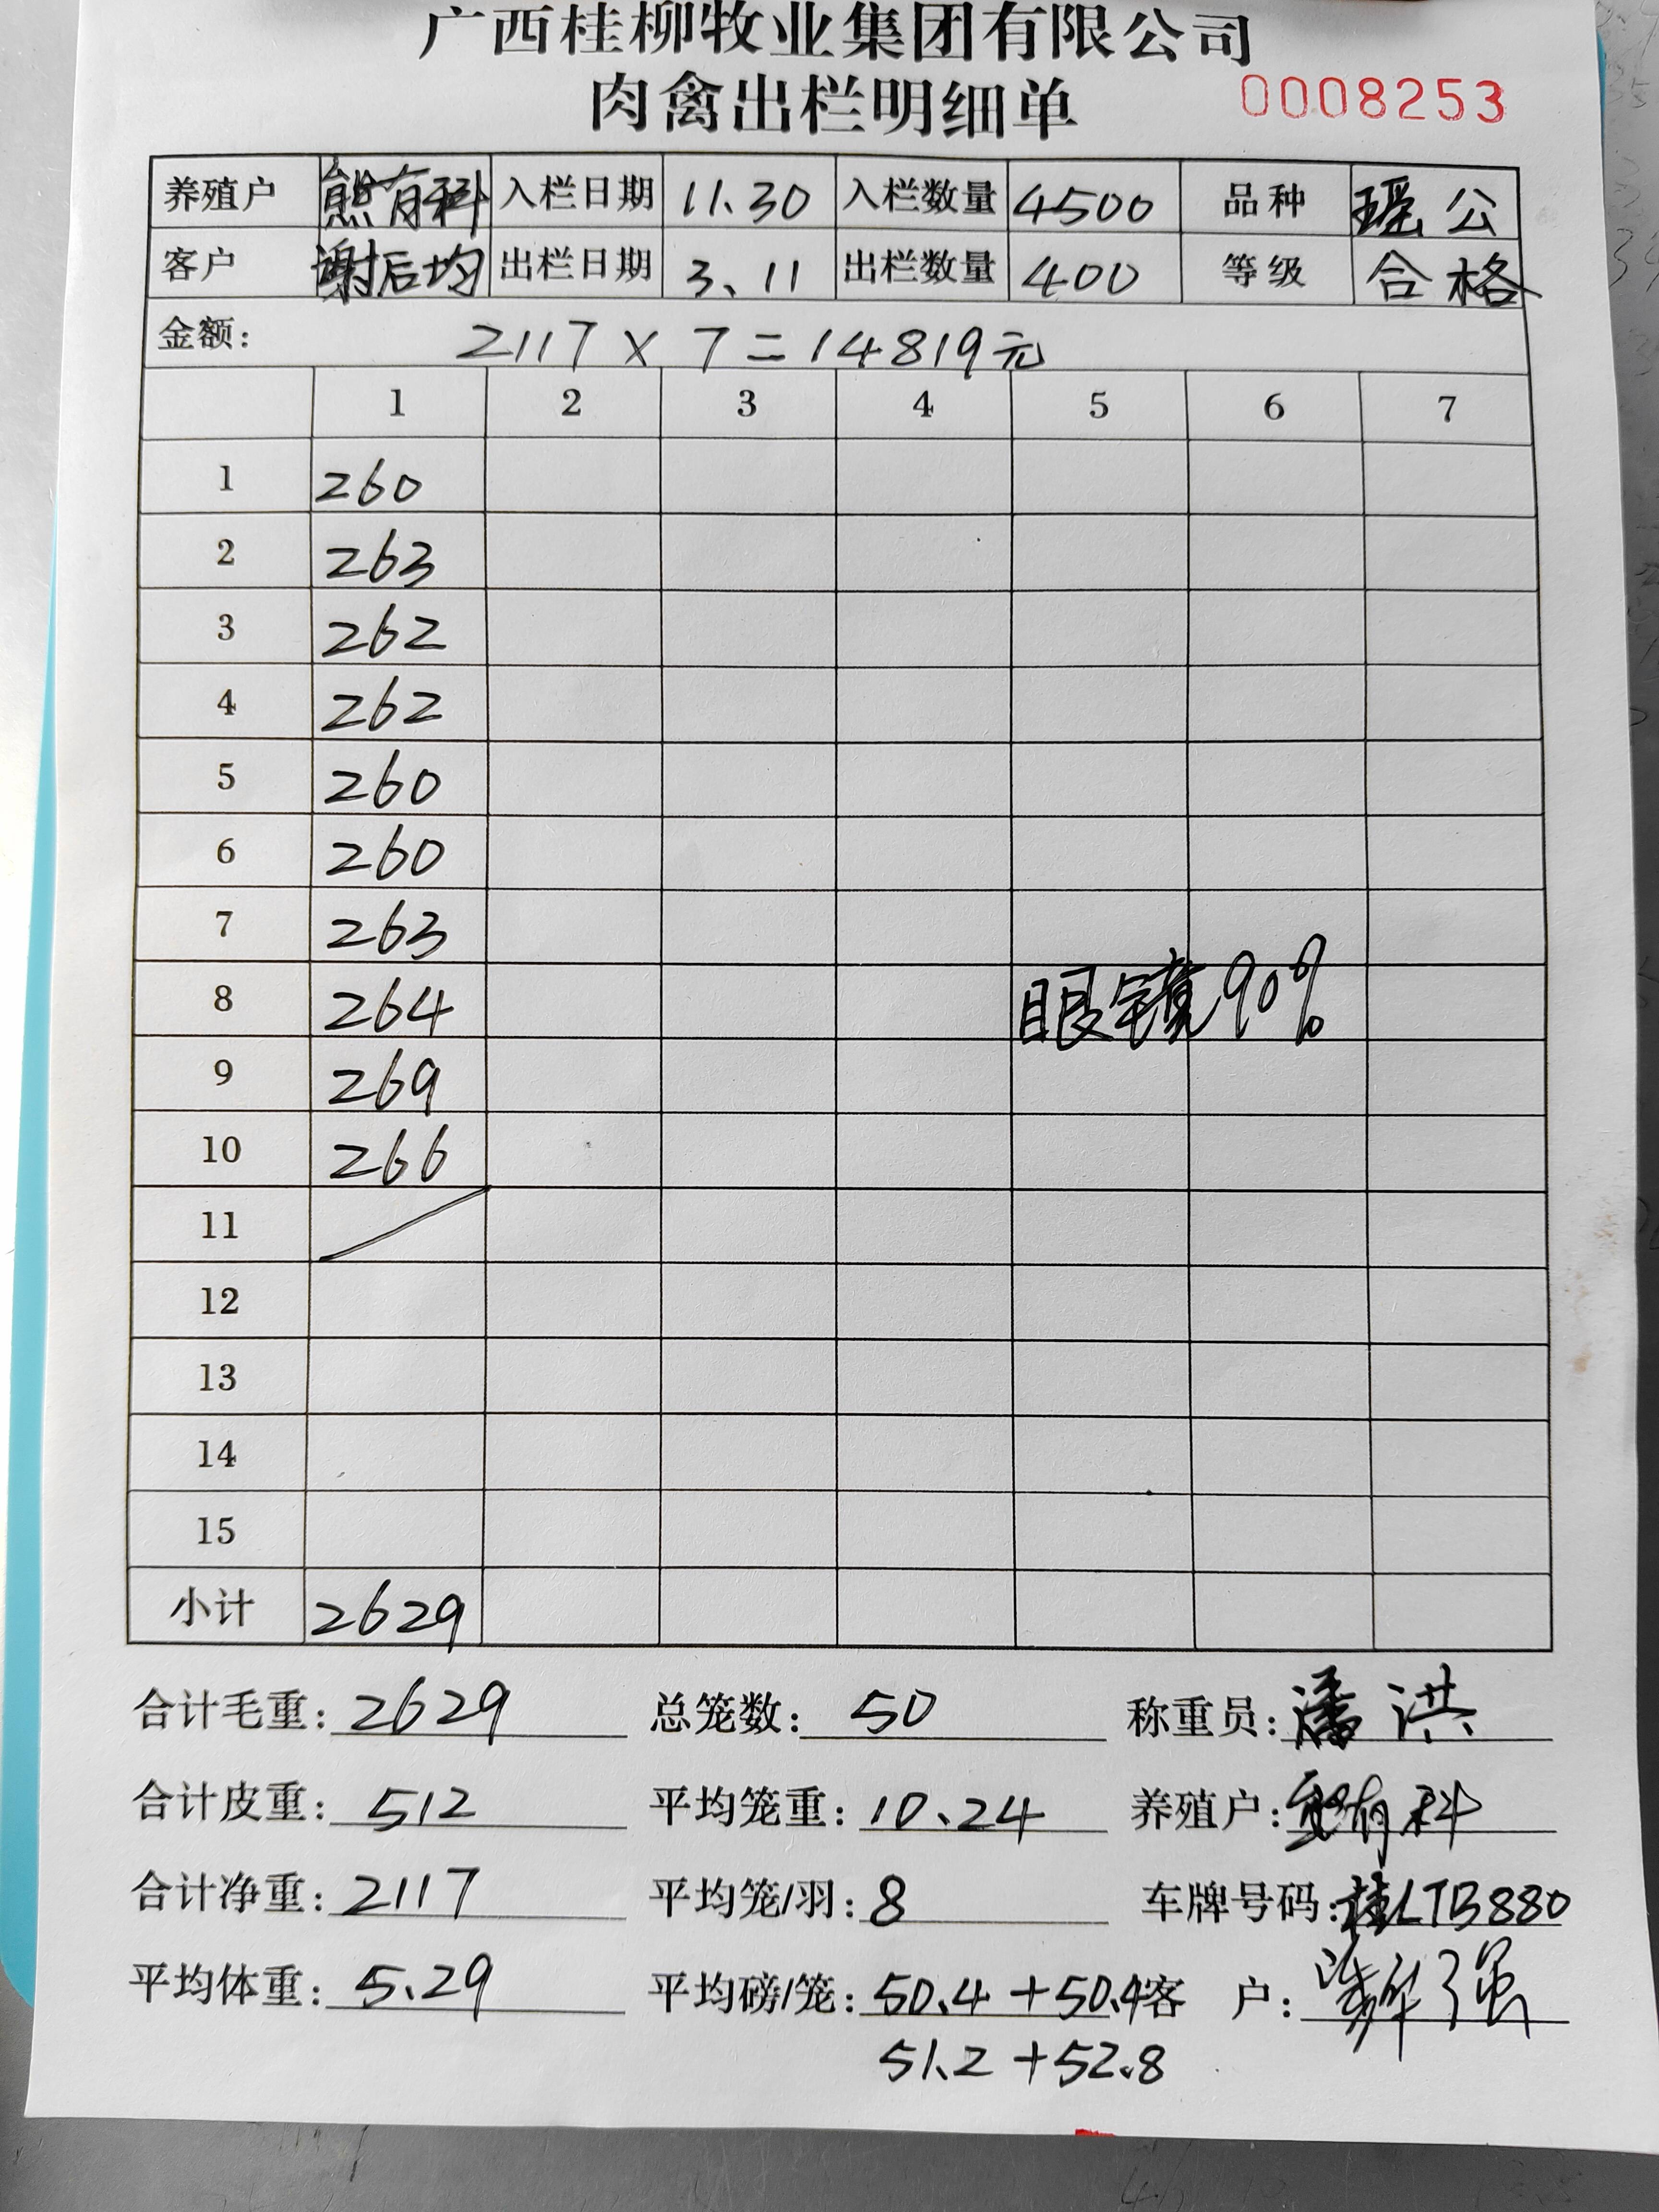 广西桂柳牧业集团有限公司
肉禽出栏明细单 0008253
养殖户 熊有科 入栏日期 11.30 入栏数量 4500 品种 瑶公
客户 谢后均 出栏日期 3、11 出栏数量 400 等级 合格
金额: 2117 × 7 = 14819元
1 2 3 4 5 6 7
1 260
2 263
3 262
4 262
5 260
6 260
7 263
8 264 眼镜90%
9 269
10 266
11
12
13
14
15
小计 2629
合计毛重: 2629 总笼数: 50 称重员: 潘洪
合计皮重: 512 平均笼重: 10.24 养殖户: 熊有科
合计净重: 2117 平均笼/羽: 8 车牌号码: 桂LTB880
平均体重: 5.29 平均磅/笼: 50.4 + 50.4 客户:
51.2 + 52.8